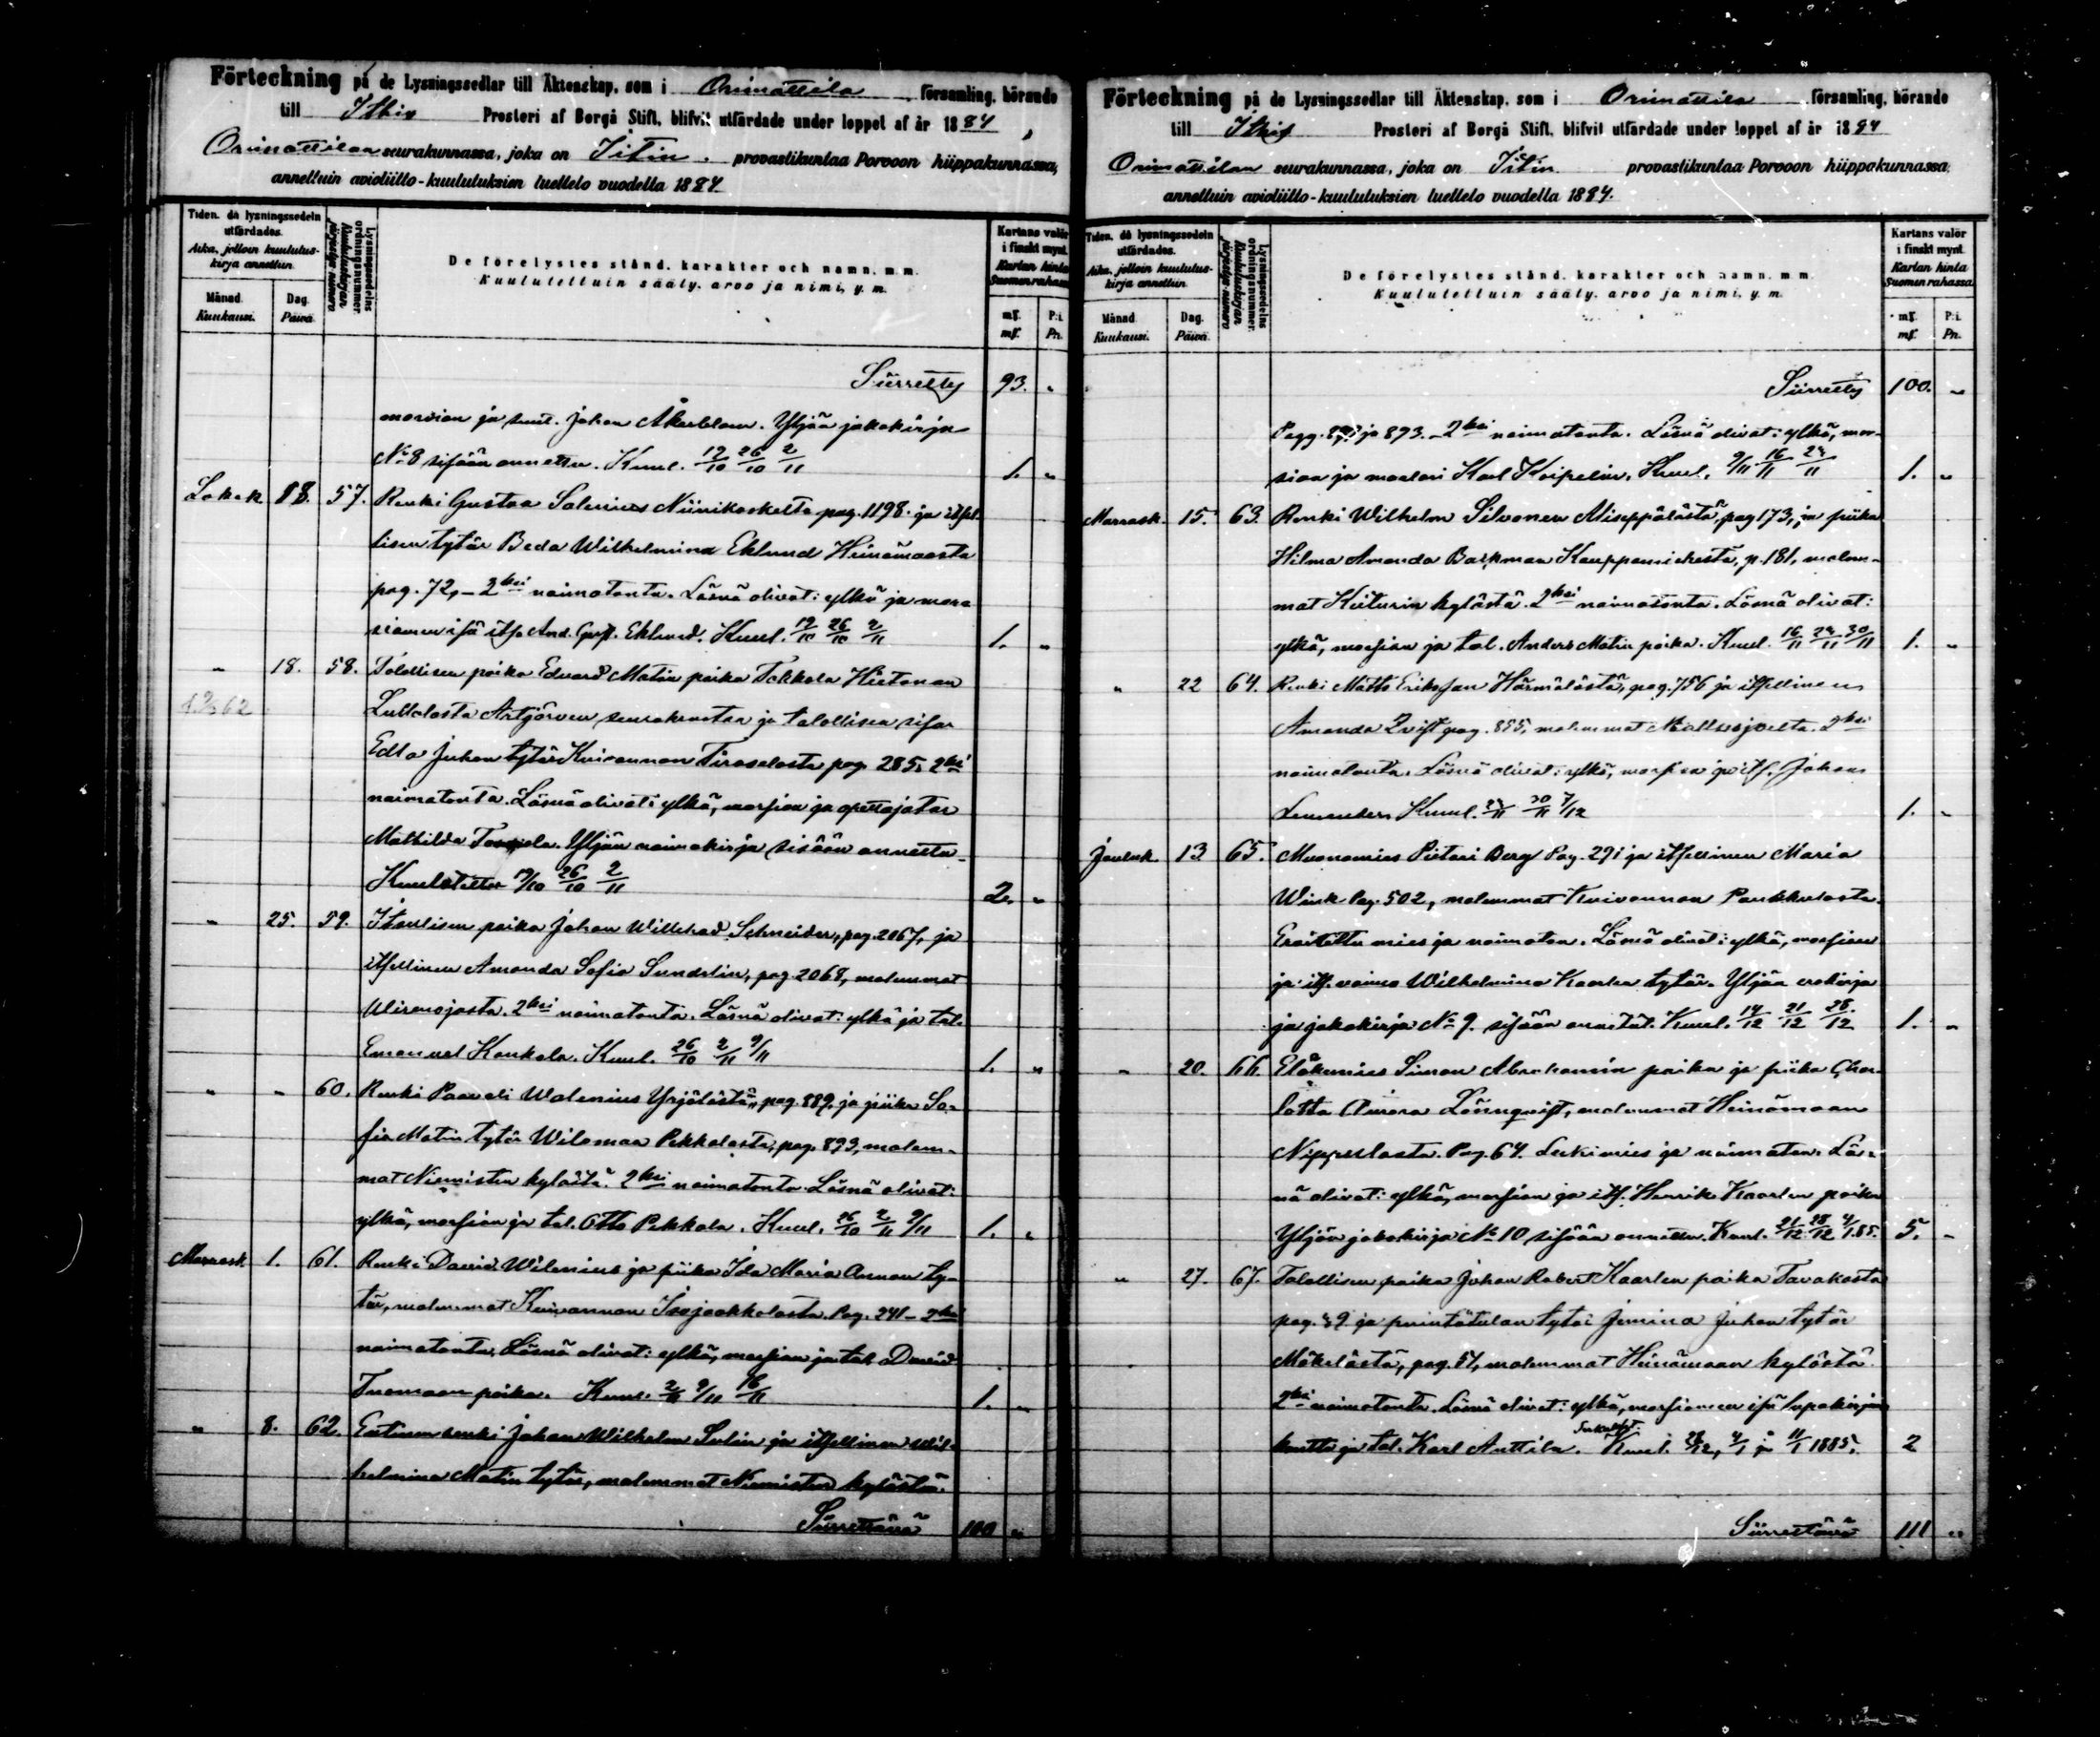 Förteckning på de Lysningssedlar till Äktenskap, som i Orimattila församling, hörande
till Ithis Prosteri af Borgå Stift, blifvit utfärdade under loppet af år 1884,
Orimattilan seurakunnassa, joka on Iitin provastikuntaa Porvoon hiippakunnassa,
annettuin avioliitto-kuulutuksien luettelo vuodella 1884.
Tiden, då lysningssedeln utfärdades.
Aika, jolloin kuulutus-kirja annettiin.
Månad. Kuukausi.
Dag. Päivä.
Lysningssedelns ordningsnummer.
Kuulutuskirjan järjestys-numero
De förelystes stånd, karakter och namn, m.m.
Kuulutettuin sääty, arvo ja nimi, y.m.
Kartans valör i finskt mynt.
Kartan hinta Suomen rahassa
mf. P:i.
mf. Pn.
Siirretty 93. "
morsian ja suut. Johan Åkerblom. Yljän jakokirja
No 8 sisään annettu. Kuul. 19/10 26/10 2/11 1. "
Lokak. 18. 57. Renki Gustaa Salenius Niinikoskelta pag. 1198. ja itsel-
lisen tytär Beda Wilhelmina Eklund Heinämaasta
pag. 72, - 2ksi naimatonta. Läsnä olivat: ylkä ja mor-
siamen isä its. And. Gust. Eklund. Kuul. 19/10 26/10 2/11 1. "
" 18. 58. Talollisen poika Edvard Matin poika Tokkola Hietanan
Lullolasta Artjärven seurakuntaa ja talollisen sisar
Edla Juhon tytär Kuivannon Tiraselasta pag. 285. 2ksi
naimatonta. Läsnä olivat: ylkä, morsian ja opettajatar
Mathilda. Yljän naimakirja sisään annettu.
Kuulutettu 19/10 26/10 2/11 2. "
" 25. 59. Itsellisen poika Johan Willehad Schneider, pag. 2067, ja
itsellinen Amanda Sofia Sundelin, pag. 2068, molemmat
Wirenojasta. 2ksi naimatonta. Läsnä olivat: ylkä ja tal.
Emanuel Konkola. Kuul. 26/10 2/11 9/11 1. "
" " 60. Renki Paaveli Walenius Yrjölästä, pag. 889, ja piika So-
fia Matin tytär Wilomaa Pekkolasta, pag. 893, molem-
mat Niemistön kylästä. 2ksi naimatonta. Läsnä olivat:
ylkä, morsian ja tal. Otto Pekkola. Kuul. 26/10 2/11 9/11 1. "
Marrask. 1. 61. Renki David Wilenius ja piika Ida Maria Annan ty-
tär, molemmat Kuivannon Isojaakkolasta. Pag. 241 - 2ksi
naimatonta. Läsnä olivat: ylkä, morsian ja tal. David
Tuomaan poika. Kuul. 2/11 9/11 16/11 1. "
" 8. 62. Entinen renki Johan Wilhelm Sulin ja itsellinen Wil-
helmina Matin tytär, molemmat Niemistön kylästä.
Siirrettävä 100 "
Förteckning på de Lysningssedlar till Äktenskap, som i Orimattila församling, hörande
till Ithis Prosteri af Borgå Stift, blifvit utfärdade under loppet af år 1884
Orimattilan seurakunnassa, joka on Iitin provastikuntaa Porvoon hiippakunnassa,
annettuin avioliitto-kuulutuksien luettelo vuodella 1884.
Tiden, då lysningssedeln utfärdades.
Aika, jolloin kuulutus-kirja annettiin.
Månad. Kuukausi.
Dag. Päivä.
Lysningssedelns ordningsnummer.
Kuulutuskirjan järjestys-numero
De förelystes stånd, karakter och namn, m.m.
Kuulutettuin sääty, arvo ja nimi, y.m.
Kartans valör i finskt mynt.
Kartan hinta Suomen rahassa
mf. P:i.
mf. Pn.
Siirretty 100. "
Pagg. ja 893. - 2ksi naimatonta. Läsnä olivat: ylkä, mor-
sian ja maalari Karl Koipelin. Kuul. 9/11 16/11 23/11 1. "
Marrask. 15. 63. Renki Wilhelm Silvonen Miseppälästä, pag 173, ja piika
Hilma Amanda Backman Kauppamichestä, p. 181, molem-
mat Keiturin kylästä. 2ksi naimatonta. Läsnä olivat:
ylkä, morsian ja tal. Anders Matin poika. Kuul. 16/11 23/11 30/11 1. "
" 22 64. Renki Matts Eriksson Härmälästä, pag. 756 ja itsellinen
Amanda Qvist pag. 885, molemmat Mallusjoelta. 2ksi
naimatonta. Läsnä olivat: ylkä, morsian ja its. Johan
Lemander. Kuul. 23/11 30/11 7/12 1. "
Jouluk. 13 65. Muonamies Pietari Berg Pag. 291 ja itsellinen Maria
Wink Pag. 502, molemmat Kuivannon Paukkulasta.
Eroitettu mies ja naimaton. Läsnä olivat: ylkä, morsian
ja its. vaimo Wilhelmina Kaarlen tytär. Yljän erokirja
ja jakokirja No 9. sisään annetut. Kuul. 14/12 21/12 28/12 1. "
" 20. 66. Eläkemies Simon Abrahamin poika ja piika Char-
lotta Aurora Lönnqvist, molemmat Heinämaan
Nippulasta. Pag. 64. Leskimies ja naimaton. Läs-
nä olivat: ylkä, morsian ja its. Henrik Kaarlen poika
Yljän jakokirja No 10 sisään annettu. Kuul. 21/12 28/12 4/1 85. 5. "
" 27. 67. Talollisen poika Johan Robert Kaarlen poika Tavakasta
pag. 49 ja puintätulan tytär Jemina Juhon tytär
Mäkelästä, pag. 51, molemmat Heinämaan kylästä.
2ksi naimatonta. Läsnä olivat: ylkä, morsiamen isä lupakirjan
kautta ja tal. Karl Anttila. Kuul. 28/12, 4/1 ja 11/1 1885. 2
Siirrettävä 111 "